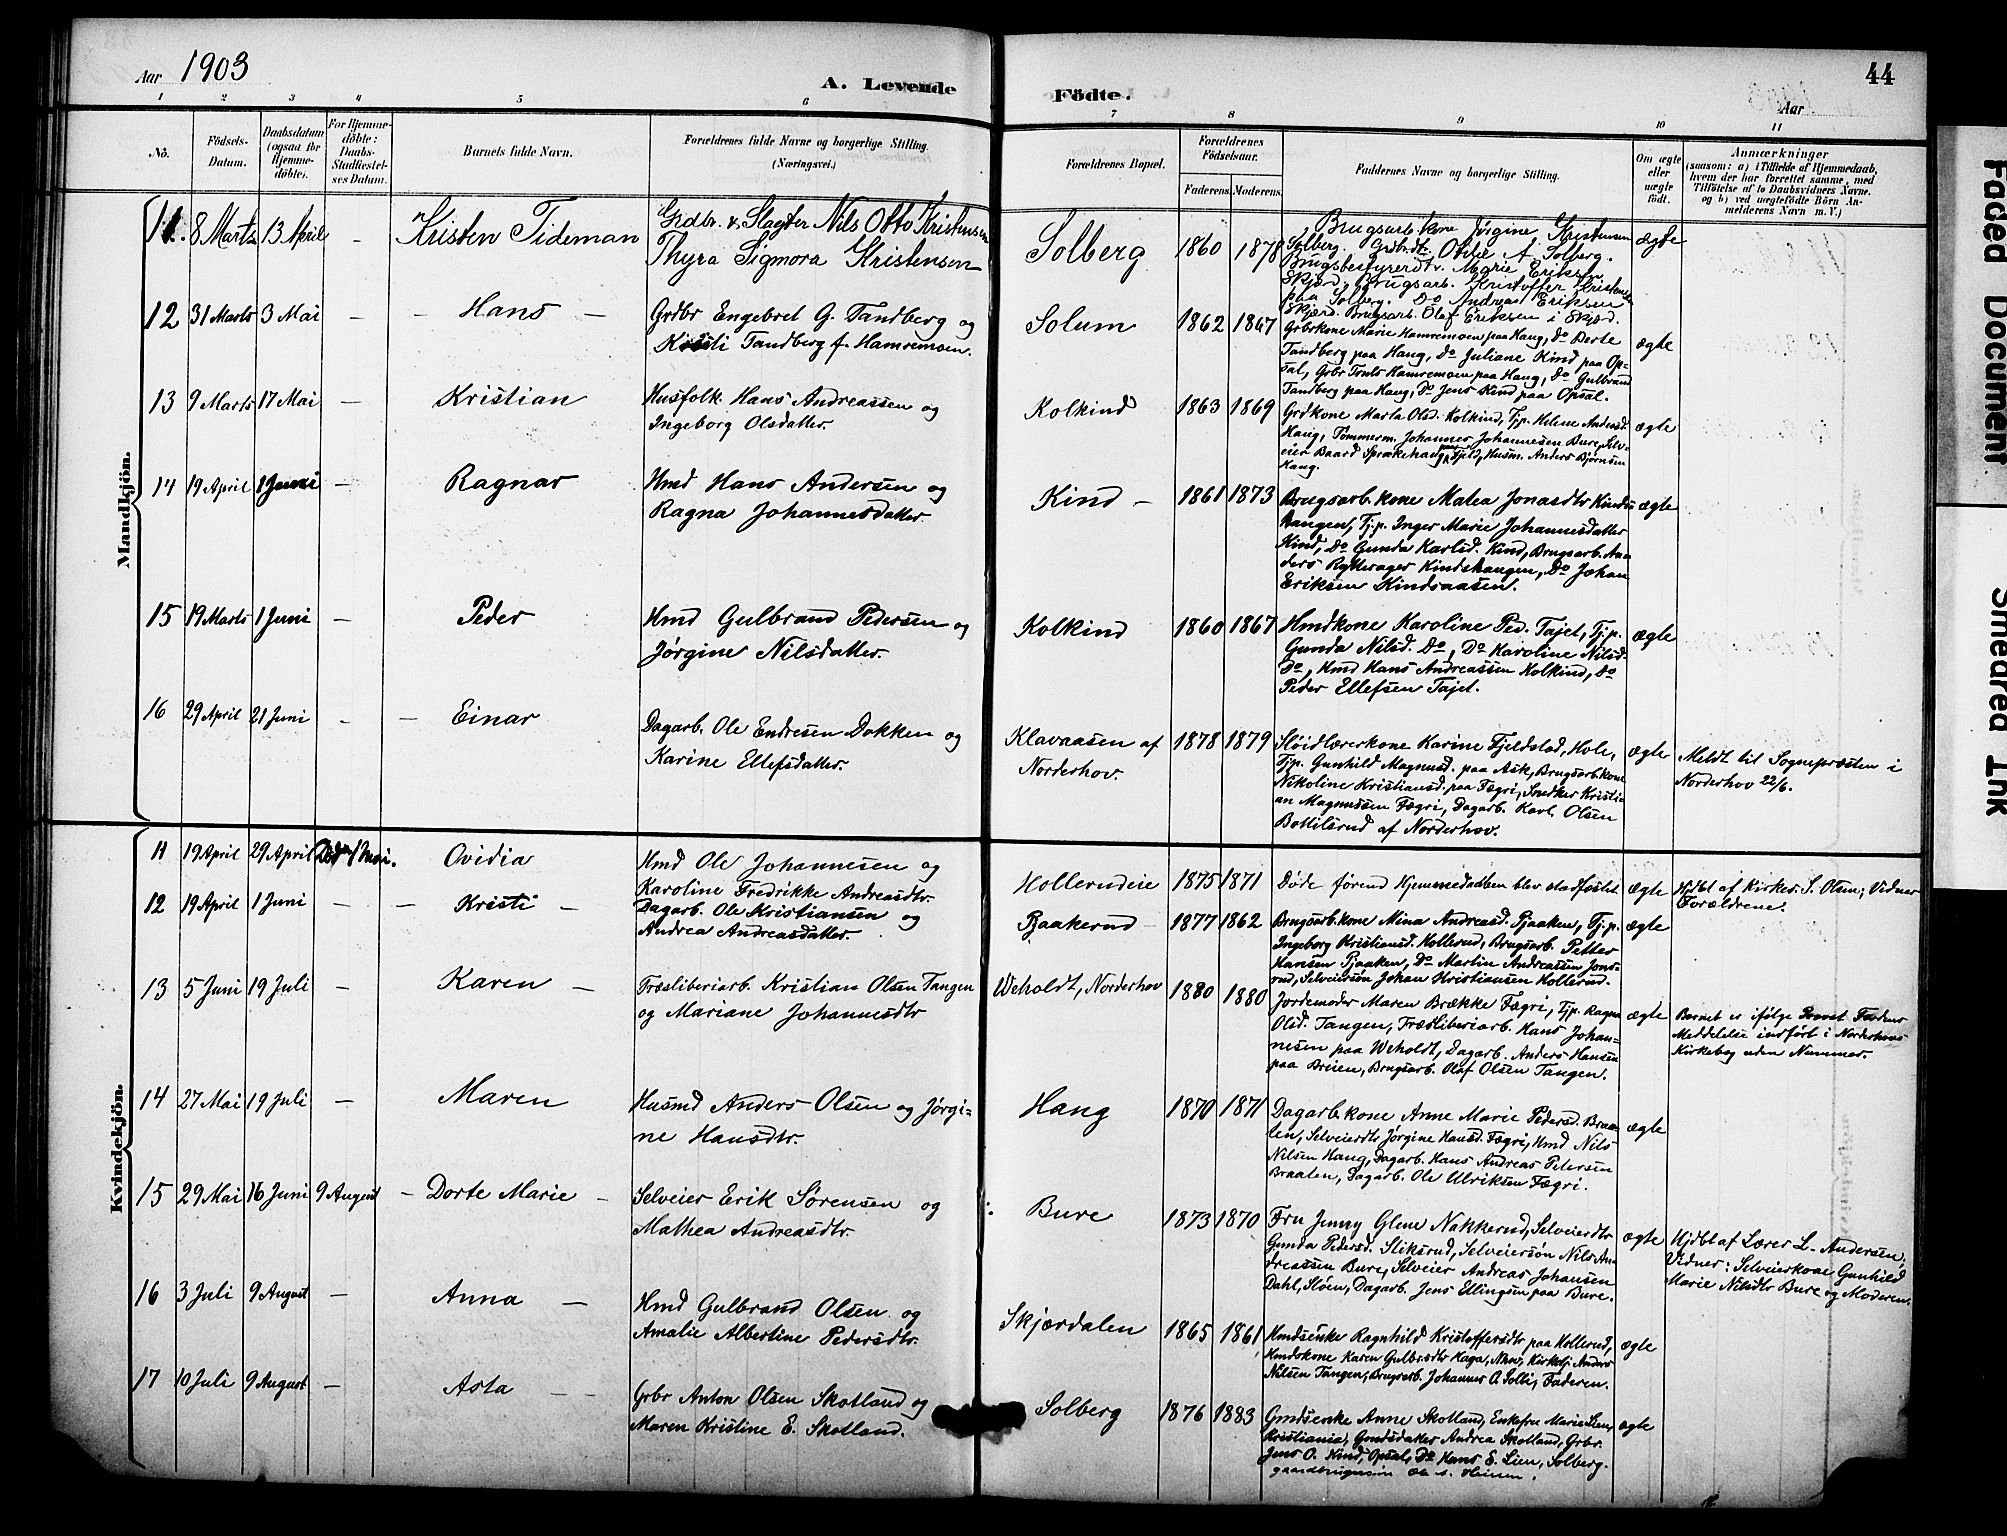 Aar 1903
A. Levende
Födte.
Aar
44
1 2 3 4 5 6 7 8 9 10 11
No.
Födsels-Datum.
Daabsdatum (ogsaa for Hjemme-döbte).
For Hjemme-döbte: Daabs-Stadfæstel-ses Datum.
Barnets fulde Navn.
Forældrenes fulde Navne og borgerlige Stilling. (Næringsvei.)
Forældrenes Bopæl.
Forældrenes Födselsaar.
Faderens. Moderens.
Faddernes Navne og borgerlige Stilling.
Om ægte eller uægte födt.
Anmærkninger
(saasom: a) i Tilfælde af Hjemmedaab,
hvem der har forrettet samme, med
Tilföielse af to Daabsvidners Navne.
og b) ved uægtefödte Börn An-
melderens Navn m. V.)
Mandkjön.
11. 8 Marts 13 April – Kristen Tideman
Grdbr. & Slagter Nils Otto Kristensen
Thyra Sigmora Kristensen
Solberg 1860 1878
Brugsarb.kone Jørgine Kristensen
Solberg. Grdbrdtr. Otilie A. Solberg.
Brugsbestyrerdtr. Marie Eriksen
Skjørd, Brugsarb. Kristoffer Kristensen
paa Solberg. Do Andreas Eriksen
Skjørd. Brugsarb. Olaf Eriksen i Skjørd.
ægte
12 31 Marts 3 Mai – – Hans –
Grdbr Engebret G. Tandberg og
Kisti Tandberg f. Hamremoen.
Solum 1862 1867
Grbrkone Marie Hamremoen paa Haug, Do Berte
Tandberg paa Haug, Do Juliane Kind paa Op-
sal, Grbr Truls Hamremoen paa Haug, Do Gulbrand
Tandberg paa Haug, Do Jens Kind paa Opsal.
ægte
13 9 Marts 17 Mai – Kristian
Husfolk Hans Andreassen og
Ingeborg Olsdatter.
Kolkind 1863 1869
Grdkone Marta Olsd. Kolkind, Tjp. Helene Andersd.
Haug, Tømmerm. Johannes Johannesen Bure, Selv-
eier Baard Sprækehaug paa Fjeld, Husm. Anders Bjørnsen
Haug.
ægte
14 19 April 1 Juni – Ragnar
Hmd Hans Andersen og
Ragna Johannesdatter.
Kind – 1861 1873
Brugsarb.kone Malea Jonasdtr Kinds-
haugen, Tj.p. Inger Marie Johannesdatter
Kind, Do Gunda Karlsd. Kind, Brugsarb. An-
ders Rytterager Kindshaugen, Do Johan
Eriksen Kindsaasen.
ægte
15 19 Marts 1 Juni – Peder
Hmd Gulbrand Pedersen og
Jørgine Nilsdatter.
Kolkind 1860 1867
Hmdkone Karoline Ped. Tajet, Tj.p.
Gunda Nilsd. Do, Do Karoline Nilsd.
Do, Hmd Hans Andreassen Kolkind, Do
Peder Ellefsen Tajet.
ægte
16 29 April 21 Juni – – Einar
Dagarb. Ole Endresen Dokken og
Karine Ellefsdatter.
Klavaasen af
Norderhov.
1878 1879
Sløidlærerkone Karine Fjeldstad, Hole,
Tjp. Gunhild Magnusd. paa Ask, Brugsarb.kone
Nikoline Kristiansd. paa Fægri, Snedker Kristi-
an Magnussen Fægri, Dagarb. Karl Olsen
Bottilsrud af Norderhov.
ægte
Meldt til Sognepræsten i
Norderhov 22/6.
Kvindekjön.
11 19 April 29 April Død 1 Mai. Ovidia
Hmd Ole Johannesen og
Karoline Fredrikke Andreasdtr.
Hollerudeie 1875 1871
Døde førend Hjemmedaaben blev stadfæstet
ægte
Hjdbt af Kirkes. S. Olsen; Vidner
Forældrene.
12 19 April 1 Juni – – Kristi –
Dagarb. Ole Kristiansen og
Andrea Andreasdatter.
Baakerud 1877 1862
Brugsarb.kone Mina Andreasd. Pjaaken, Tj.p.
Ingeborg Kristiansd. Hollerud, Brugsarb. Petter
Hansen Pjaaken, Do Martin Andreassen Jons-
rud, Selveiersøn Johan Kristiansen Hollerud.
ægte
13 5 Juni 19 Juli – Karen –
Træsliberiarb. Kristian Olsen Tangen
og Mariane Johannesdtr
Weholdt, Norderhov 1880 1880
Jordemoder Maren Brække Fægri, Tj.p. Ragna
Olsd. Tangen, Træsliberiarb. Hans Johan-
nesen paa Weholdt, Dagarb. Anders Hansen
paa Breien, Brugsarb. Olaf Olsen Tangen.
ægte
Barnet er ifølge Provst Fadens
Meddelelse indført i Norderhovs
Kirkebog uden Nummer.
14 27 Mai 19 Juli – Maren
Husmd Anders Olsen og Jørgi-
ne Hansdtr.
Haug 1870 1871
Dagarb.kone Anne Marie Pedersd. Braa-
ten, Selveierdtr Jørgine Hansd. Fægri, Hmd Nils
Nilsen Haug, Dagarb. Hans Andreas Petersen
Braaten, Dagarb. Ole Ulriksen Fægri.
ægte
15 29 Mai 16 Juni 9 August – Dorte Marie –
Selveier Erik Sørensen og
Mathea Andreasdtr.
Bure 1873 1870
Fru Jenny Glene Nakkerud, Selveierdtr
Gunda Pedersd. Sliksrud, Selveiersøn Nils An-
dreassen Bure, Selveier Andreas Johansen
Dahl, Sloen, Dagarb. Jens Ellingsen paa Bure.
ægte
Hjdbt af Lærer L. Andersen,
Vidner: Selveierkone Gunhild
Marie Nilsdtr Bure og Moderen.
16 3 Juli 9 August – Anna –
Hmd Gulbrand Olsen og
Amalie Albertine Pedersdtr.
Skjærdalen 1865 1861
Hmdsenke Ragnhild Kristoffersdtr paa Hollerud,
Hmdskone Karen Gulbrsdtr Haga, Nhov, Kirketj. Anders
Nilsen Tangen, Brugsarb. Johannes A. Solbg, Faderen.
ægte
17 10 Juli 9 August – Asta – –
Grbr Anton Olsen Skotland og
Maren Kristine E. Skotland.
Solberg 1876 1883
Gmdsenke Anne Skotland, Enkefru Marie Lien,
Kristiania, Gmdsdatter Andrea Skotland, Grbr.
Jens O. Kind, Opsal, Do Hans E. Lien, Solberg.
ægte
Faded Document
Smeared Ink